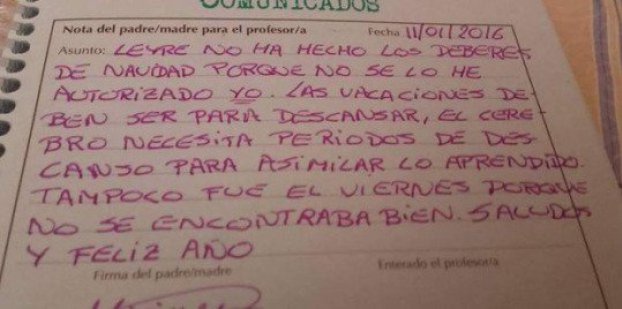 COMUNICADOS
Nota del padre/madre para el profesor/a Fecha 11/01/2016
Asunto: LEYRE NO HA HECHO LOS DEBERES
DE NAVIDAD PORQUE NO SE LO HE
AUTORIZADO YO. LAS VACACIONES DE-
BEN SER PARA DESCANSAR, EL CERE-
BRO NECESITA PERIODOS DE DES
CANSO PARA ASIMILAR LO APRENDIDO.
TAMPOCO FUE EL VIERNES PORQUE
NO SE ENCONTRABA BIEN. SALUDOS
Y FELIZ AÑO
Firma del padre/madre Enterado el profesor/a